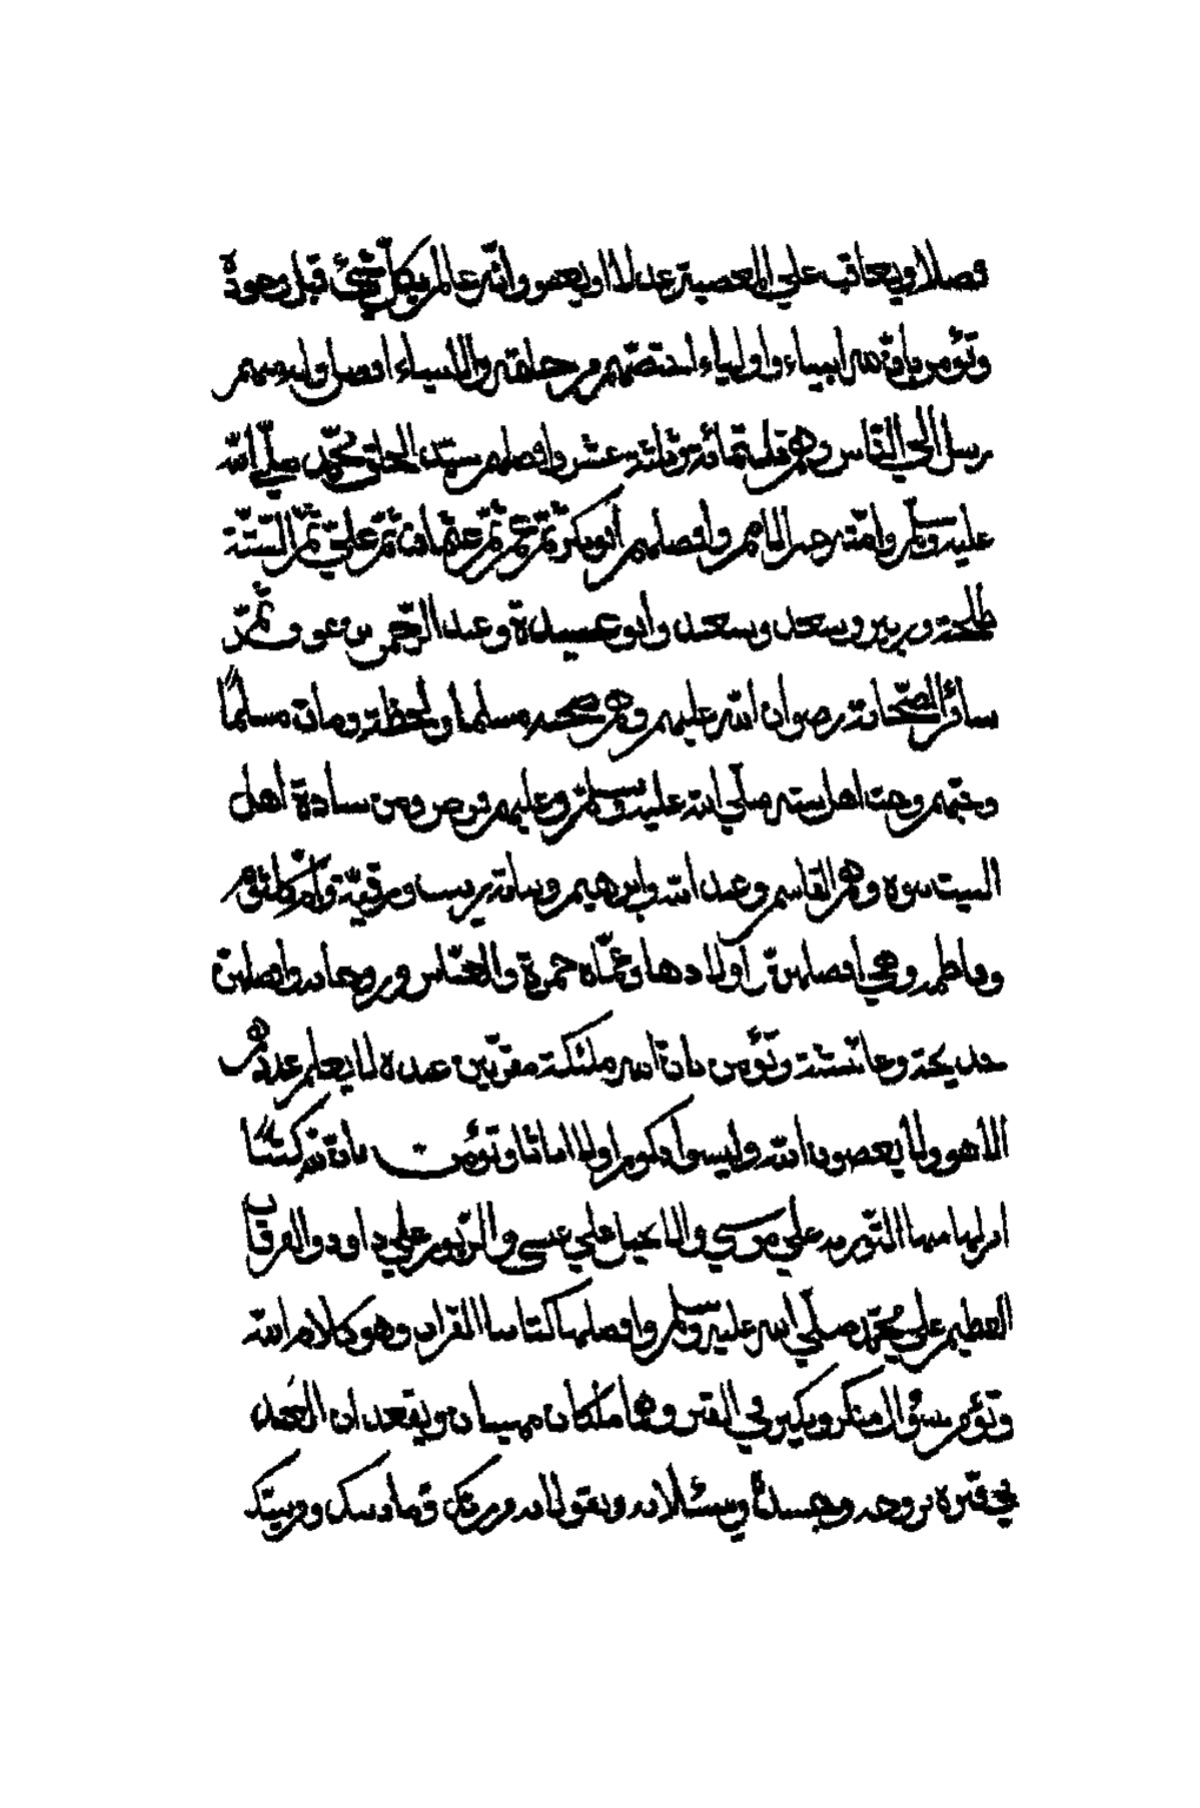 فضلا ويعاقب على المعصية عدلا او يعفو وانه عالم بكل شيء قبل وجوده
وتؤمن بان لله انبياء واولياء اختصهم من خلقه والانبياء افضل وبعضهم
رسل الي الناس وهم ثلثمائة وثلثة عشر وافضلهم سيد الخلق محمد صلي الله
عليه وسلم وامته خير الامم وافضلهم ابو بكر ثم عمر ثم عثمان ثم علي ثم الستة
طلحة وزبير وسعد وسعيد وابو عبيدة وعبد الرحمن بن عوف ثم
سائر الصحابة رضوان الله عليهم وهم من صحبه مسلما ولو لحظة ومات مسلما
وحبهم وحب اهل بيته صلي الله عليه وسلم وعليهم فرض ومن سادة اهل
البيت بنوه وهم القاسم وعبد الله وابرهيم وبناته زينب ورقية وام كلثوم
وفاطمة وهي افضلهن واولادها وعماه حمزة والعباس وزوجاته وافضلهن
خديجة وعائشة وتؤمن بان لله ملئكة مقربين عنده لا يعلم عددهم
الا هو ولا يعصون الله وليسوا ذكورا ولا اناثا وتؤمن بان لله كتبا
انزلها منها التورية علي موسي والانجيل علي عيسي والزبور علي داود والفرقان
العظيم علي محمد صلي الله عليه وسلم وافضلها كتابنا القران وهو كلام الله
وتؤمن بسؤال منكر ونكير في القبر وهما ملكان مهيبان ويقعدان العبد
في قبره بروحه وجسده ويسئلانه ويقولان له من ربك وما دينك ومن نبيك